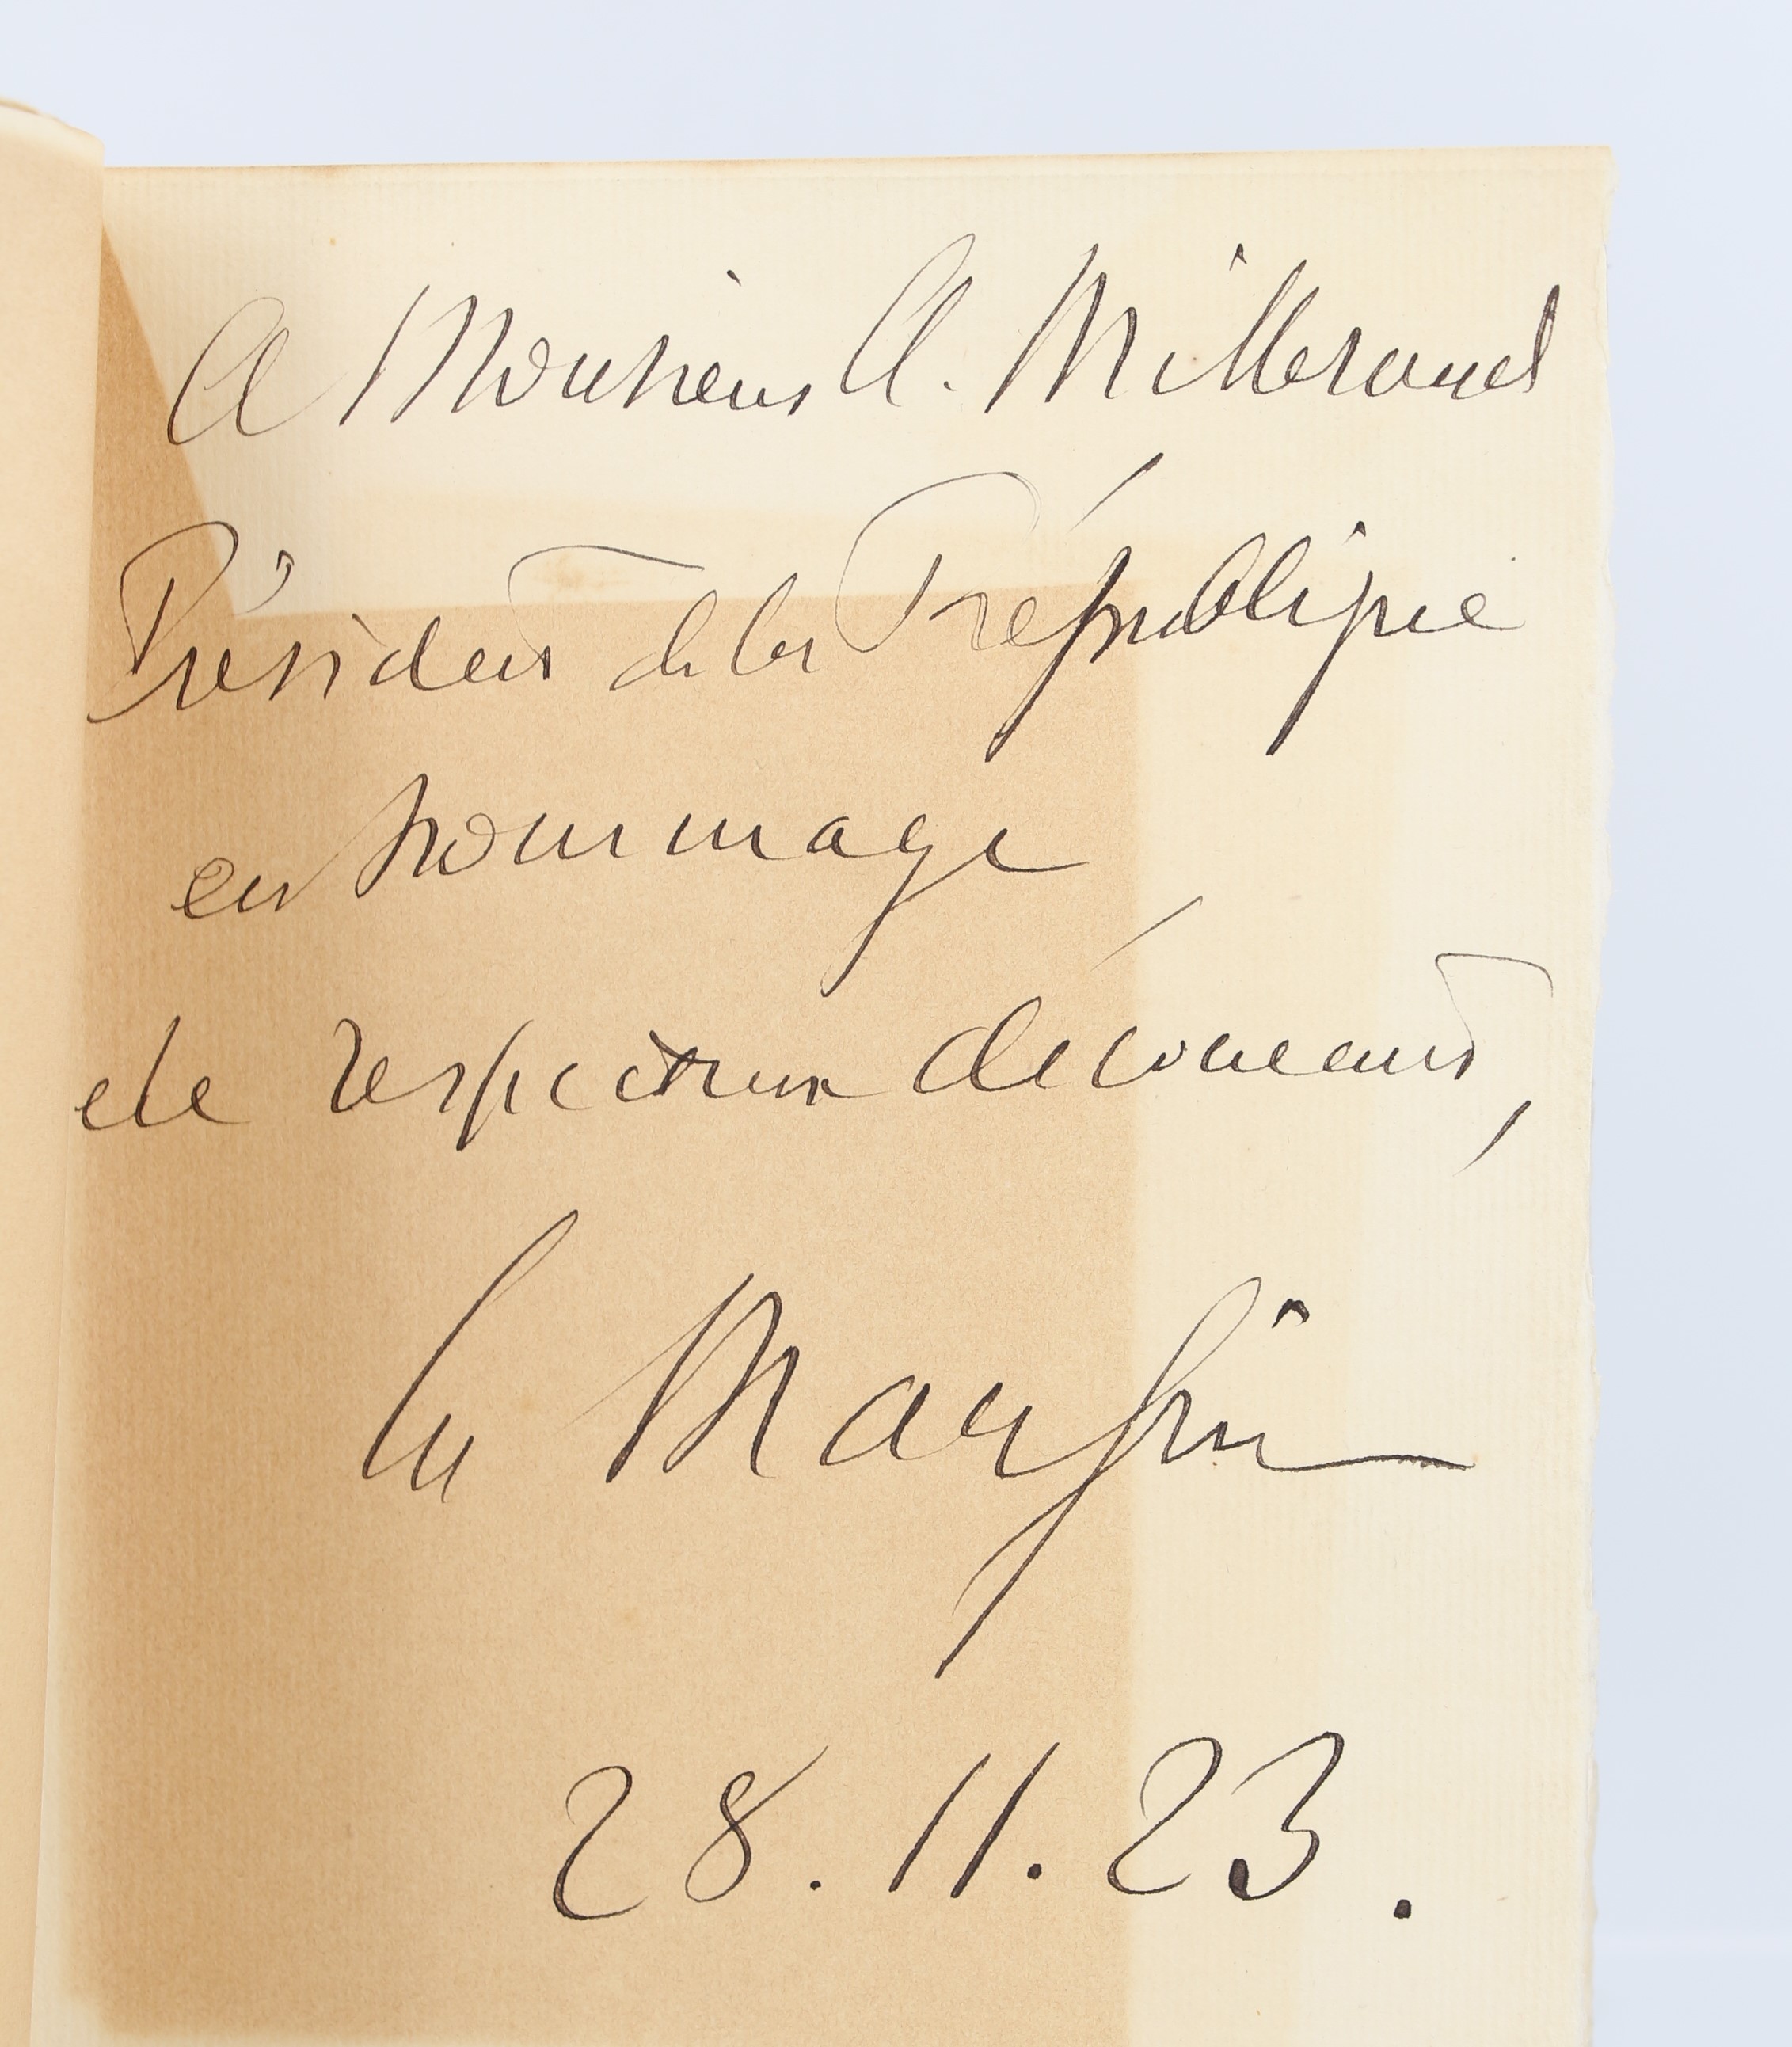 A Monsieur A. Millerand
Président de la République
en hommage
de respectueux dévouement,
Mangin
28.11.23.